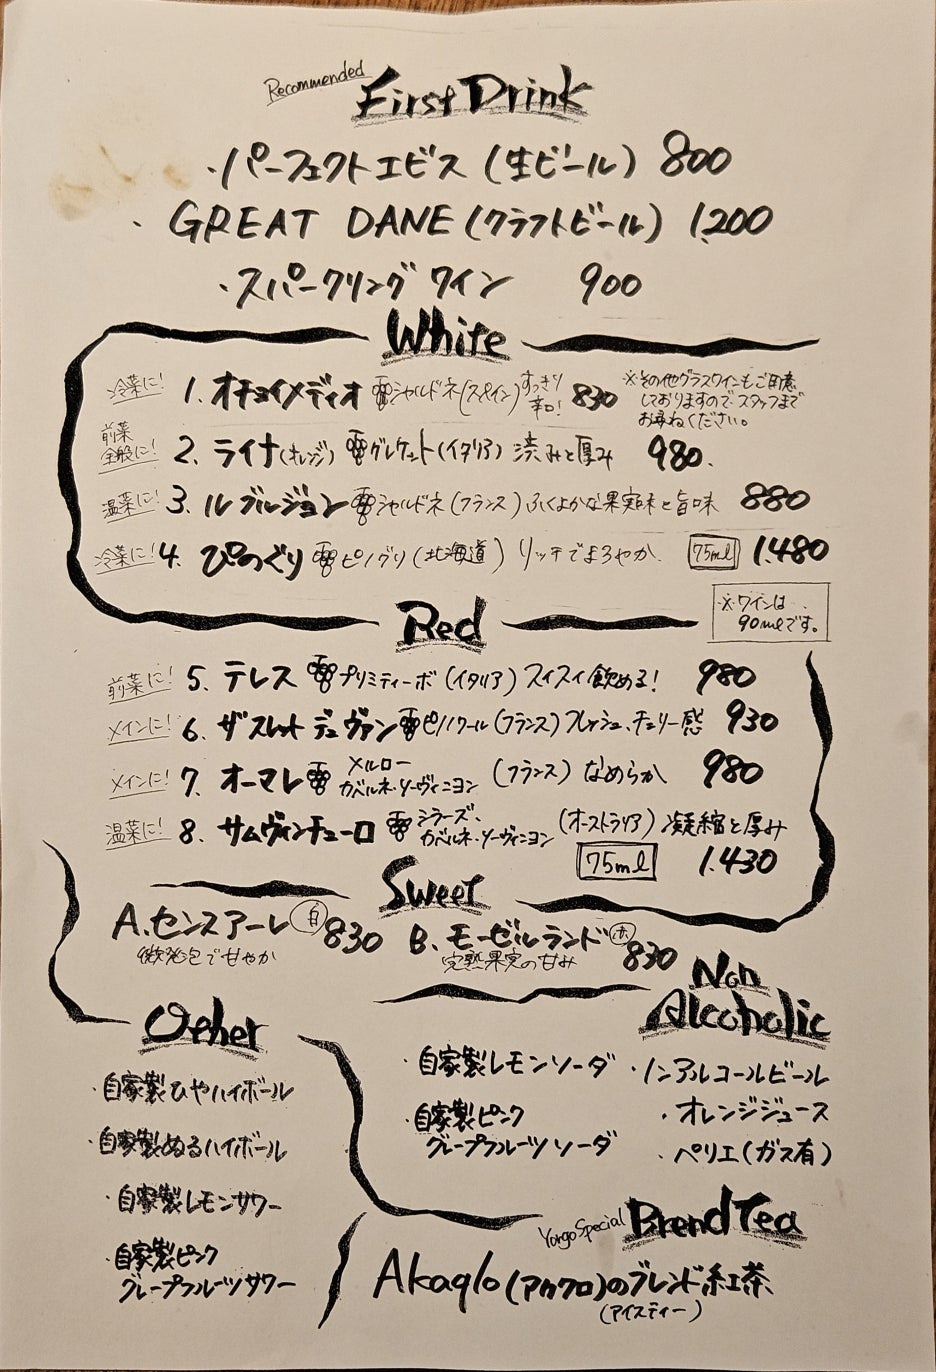 Recommended First Drink
・パーフェクトエビス (生ビール) 800
・GREAT DANE (クラフトビール) 1,200
・スパークリングワイン 900
White
冷菜に! 1. オチョイメディオ シャルドネ(スペイン) すっきり辛口! 830
※その他グラスワインもご用意
しておりますのでスタッフまで
お尋ねください。
前菜全般に! 2. ライナ(オレンジ) グレケット(イタリア) 渋みと厚み 980.
温菜に! 3. ル ブルジョン シャルドネ(フランス) ふくよかな果実味と旨味 880
冷菜に! 4. ぴのぐり ピノグリ(北海道) リッチでまろやか. 75ml 1,480
※ワインは
90mlです。
Red
前菜に! 5. テレス プリミティーボ (イタリア) スイスイ飲める! 980
メインに! 6. ザ スレット デュ ヴァン ピノノワール (フランス) フレッシュ、チェリー感 930
メインに! 7. オーマレ メルロー カベルネ・ソーヴィニヨン (フランス) なめらか 980
温菜に! 8. サムヴィンチューロ シラーズ、カベルネ・ソーヴィニヨン (オーストラリア) 凝縮と厚み
75ml 1,430
Sweet
A. センスアーレ 白 830
微発泡で甘やか
B. モーゼルランド 赤 830
完熟果実の甘み
Non
Alcoholic
・自家製レモンソーダ
・自家製ピンク
グレープフルーツソーダ
・ノンアルコールビール
・オレンジジュース
・ペリエ(ガス有)
Other
・自家製ひやハイボール
・自家製ぬるハイボール
・自家製レモンサワー
・自家製ピンク
グレープフルーツサワー
Yorgo Special Brend Tea
Akaqlo (アカクロ)のブレンド紅茶
(アイスティー)